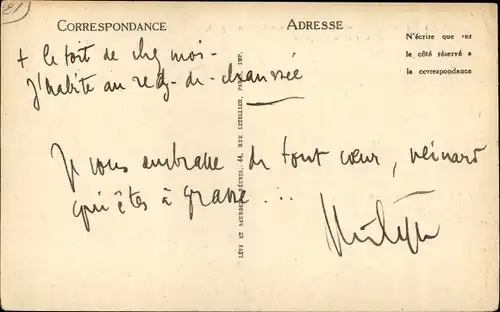 81
CORRESPONDANCE
ADRESSE
N'écrire que sur
le côté réservé a
la correspondance
+ le toit de chez moi -
J'habite au rez-de-chaussée
LÉVY ET NEURDEIN RÉUNIS, 44, RUE LETELLIER, PARIS, IMP.
Je vous embrasse de tout cœur, veinard
qui êtes à Grasse ...